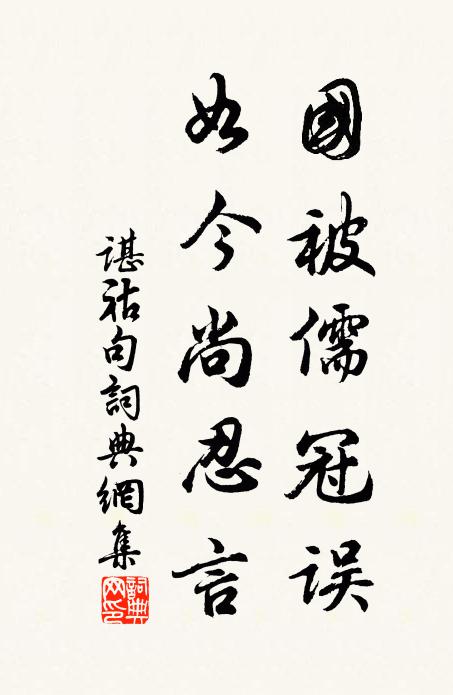 國被儒冠误
如今尚忍言
谌祜句詞典網集
詞典